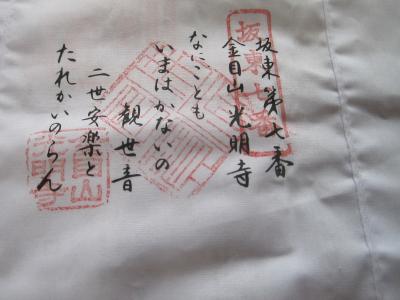 坂東第七番
金目山光明寺
なにことも
いまはかないの
観世音
二世安楽と
たれかいのらん
坂東七番